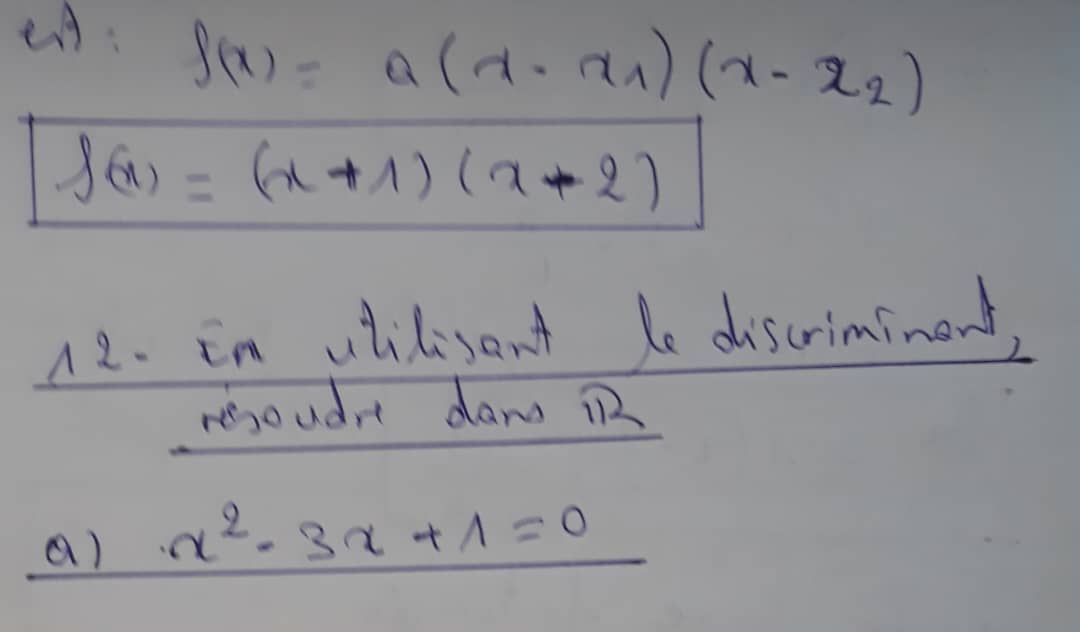 est : f(x) = a(x - x1)(x - x2)
f(x) = (x + 1)(x + 2)
12- En utilisant le discriminant,
résoudre dans ℝ
a) x² - 3x + 1 = 0